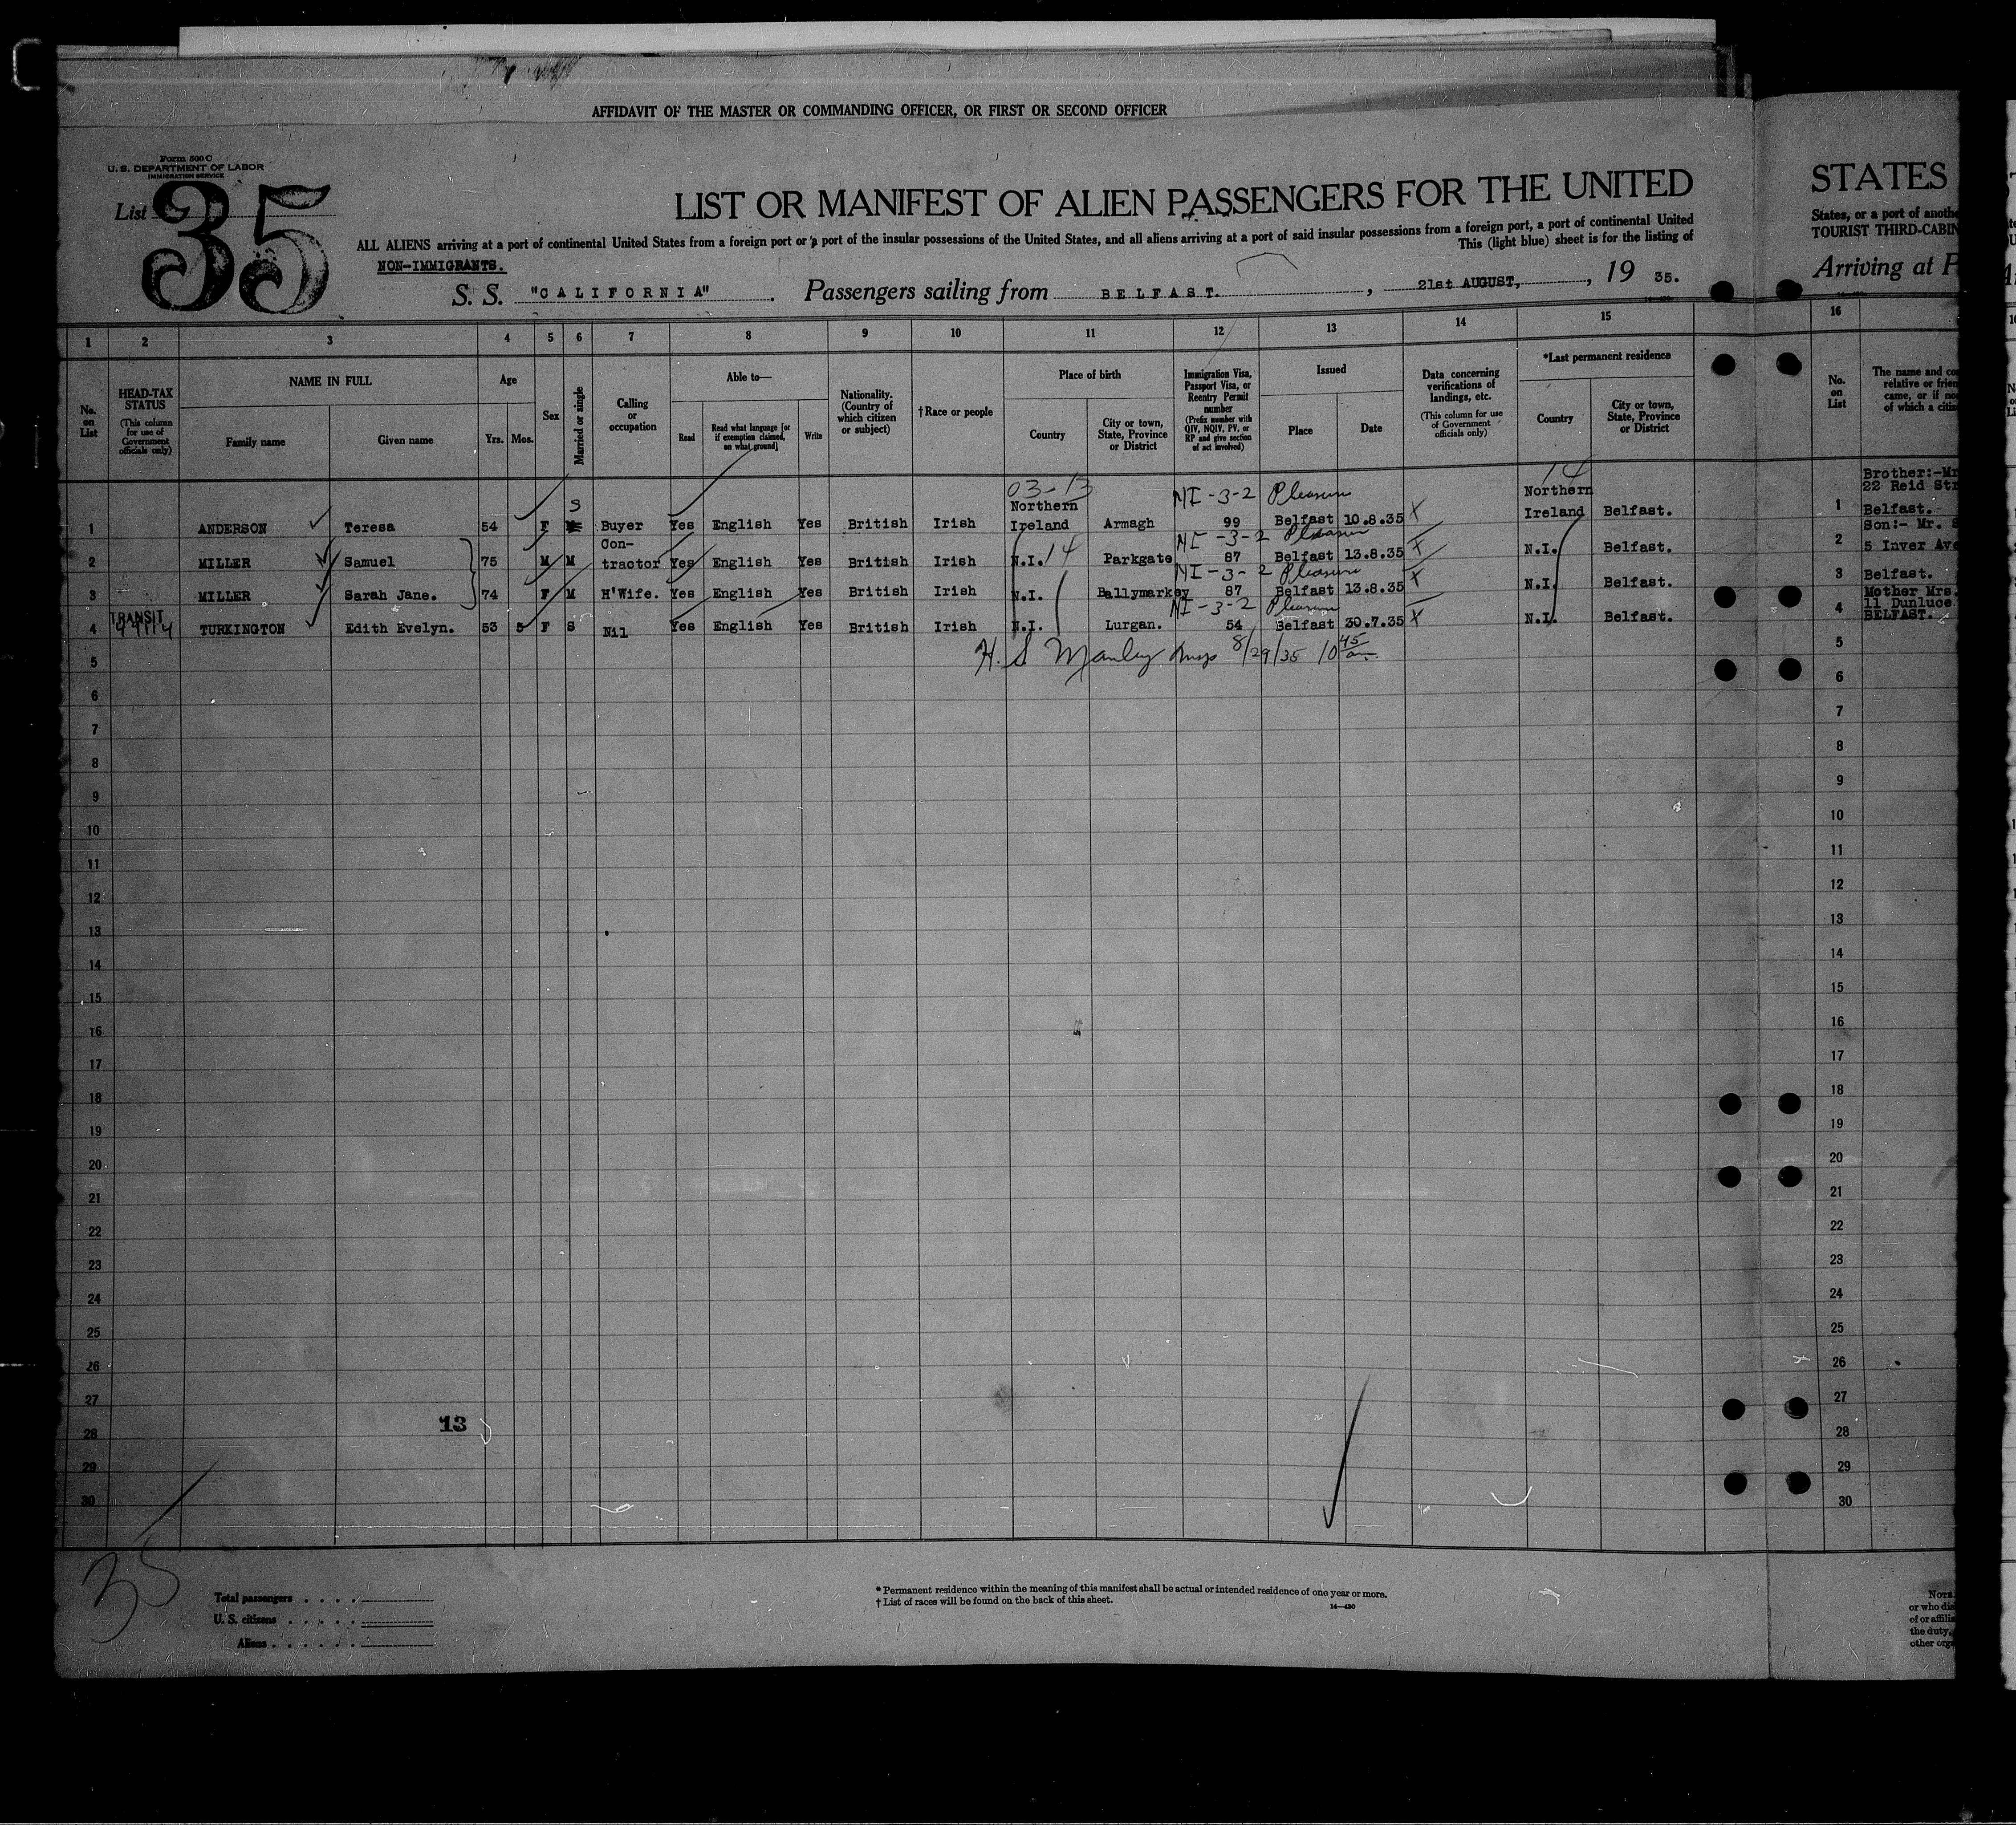 AFFIDAVIT OF THE MASTER OR COMMANDING OFFICER, OR FIRST OR SECOND OFFICER
Form 500 C
U. S. DEPARTMENT OF LABOR
IMMIGRATION SERVICE
List 35
LIST OR MANIFEST OF ALIEN PASSENGERS FOR THE UNITED
ALL ALIENS arriving at a port of continental United States from a foreign port or a port of the insular possessions of the United States, and all aliens arriving at a port of said insular possessions from a foreign port, a port of continental United
This (light blue) sheet is for the listing of
NON-IMMIGRANTS.
S. S. "CALIFORNIA". Passengers sailing from BELFAST., 21st AUGUST, , 19 35.
STATES
States, or a port of anothe
TOURIST THIRD-CABIN
Arriving at
1 2 3 4 5 6 7 8 9 10 11 12 13 14 15 16
No. on List
HEAD-TAX STATUS
(This column for use of Government officials only)
NAME IN FULL
Family name Given name
Age
Yrs. Mos.
Sex
Married or single
Calling or occupation
Able to—
Read
Read what language [or if exemption claimed, on what ground]
Write
Nationality. (Country of which citizen or subject)
†Race or people
Place of birth
Country
City or town, State, Province or District
Immigration Visa, Passport Visa, or Reentry Permit number
(Prefix number with QIV, NQIV, PV, or RP and give section of act involved)
Issued
Place Date
Data concerning verifications of landings, etc.
(This column for use of Government officials only)
*Last permanent residence
Country
City or town, State, Province or District
No. on List
The name and
relative or frien
came, or if
of which a citi
03-13 NI-3-2 Pleasure 14
1 ANDERSON Teresa 54 F S Buyer Yes English Yes British Irish Northern Ireland Armagh 99 Belfast 10.8.35 X Northern Ireland Belfast. 1
NI-3-2 Pleasure
2 MILLER Samuel 75 M M Contractor Yes English Yes British Irish N.I. 14 Parkgate 87 Belfast 13.8.35 X N.I. Belfast. 2
NI-3-2 Pleasure
3 MILLER Sarah Jane. 74 F M H'Wife. Yes English Yes British Irish N.I. Ballymarkey 87 Belfast 13.8.35 X N.I. Belfast. 3
NI-3-2 Pleasure
TRANSIT
4 TURKINGTON Edith Evelyn. 53 5 F S Nil Yes English Yes British Irish N.I. Lurgan. 54 Belfast 30.7.35 X N.I. Belfast. 4
Brother:-Mr
22 Reid Str
Belfast.
Son:- Mr.
5 Inver Ave
Belfast.
Mother Mrs.
11 Dunluce
BELFAST.
5 H. S Manley Insp 8/29/35 10 45 am. 5
6 6
7 7
8 8
9 9
10 10
11 11
12 12
13 13
14 14
15 15
16 16
17 17
18 18
19 19
20 20
21 21
22 22
23 23
24 24
25 25
26 26
27 27
13
28 28
29 29
30 30
35
Total passengers
U. S. citizens
Aliens
* Permanent residence within the meaning of this manifest shall be actual or intended residence of one year or more.
† List of races will be found on the back of this sheet.
14—430
NOTE
or who
of or affilia
the duty,
other orga